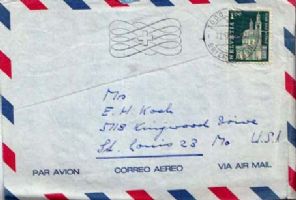 HELVETIA
Mrs
E. H. Koch
5118 Kingwood Drive
St. Louis 23 Mo. USA
PAR AVION CORREO AEREO VIA AIR MAIL